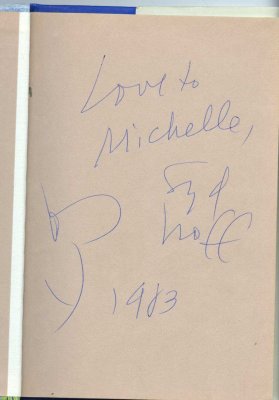 Love to
Michelle,
by Syd
Hoff
1983